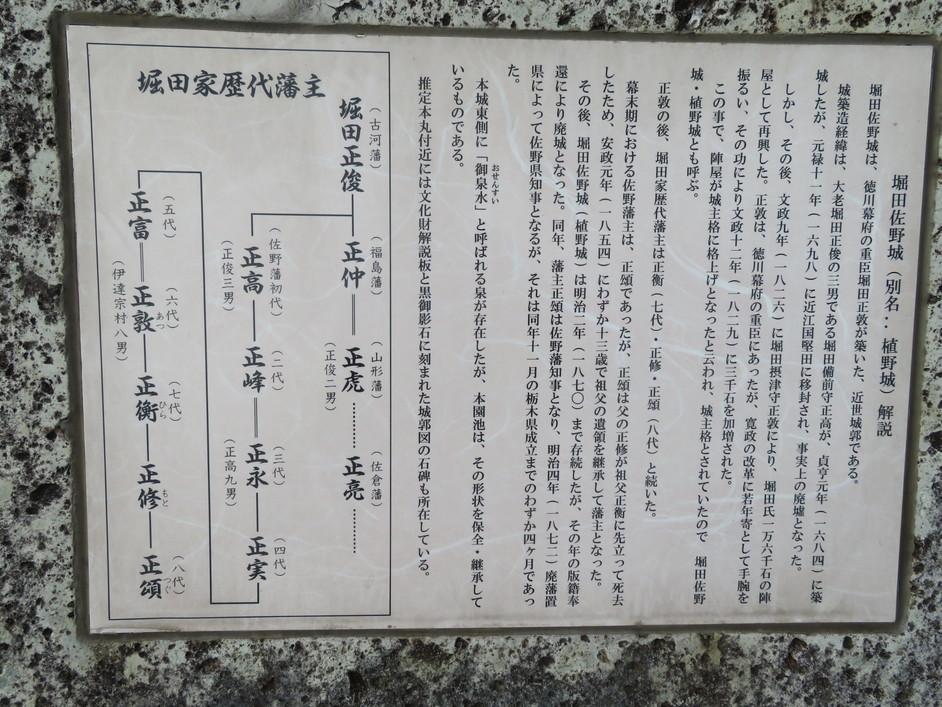 堀田佐野城（別名：植野城）解説
堀田佐野城は、徳川幕府の重臣堀田正敦が築いた、近世城郭である。
城築造経緯は、大老堀田正俊の三男である堀田備前守正高が、貞亨元年（一六八四）に築
城したが、元禄十一年（一六九八）に近江国堅田に移封され、事実上の廃墟となった。
しかし、その後、文政九年（一八二六）に堀田摂津守正敦により、堀田氏一万六千石の陣
屋として再興した。正敦は、徳川幕府の重臣にあったが、寛政の改革に若年寄として手腕を
振るい、その功により文政十二年（一八二九）に三千石を加増された。
この事で、陣屋が城主格に格上げとなったと云われ、城主格とされていたので　堀田佐野
城・植野城とも呼ぶ。
正敦の後、堀田家歴代藩主は正衡（七代）・正修・正頌（八代）と続いた。
幕末期における佐野藩主は、正頌であったが、正頌は父の正修が祖父正衡に先立って死去
したため、安政元年（一八五四）にわずか十三歳で祖父の遺領を継承して藩主となった。
その後、堀田佐野城（植野城）は明治二年（一八七〇）まで存続したが、その年の版籍奉
還により廃城となった。同年、藩主正頌は佐野藩知事となり、明治四年（一八七二）廃藩置
県によって佐野県知事となるが、それは同年十一月の栃木県成立までのわずか四ヶ月であっ
た。
本城東側に「御泉水」と呼ばれる泉が存在したが、本園池は、その形状を保全・継承して
おせんすい
いるものである。
推定本丸付近には文化財解説板と黒御影石に刻まれた城郭図の石碑も所在している。
堀田家歴代藩主
（古河藩）
堀田正俊
（福島藩）
正仲
（山形藩）
正虎
（正俊二男）
（佐倉藩）
正亮
（佐野藩初代）
正高
（正俊三男）
（二代）
正峰
（三代）
正永
（正高九男）
（四代）
正実
（五代）
正富
（六代）
正敦
あつ
（伊達宗村八男）
（七代）
正衡
ひら
正修
もと
（八代）
正頌
つぐ